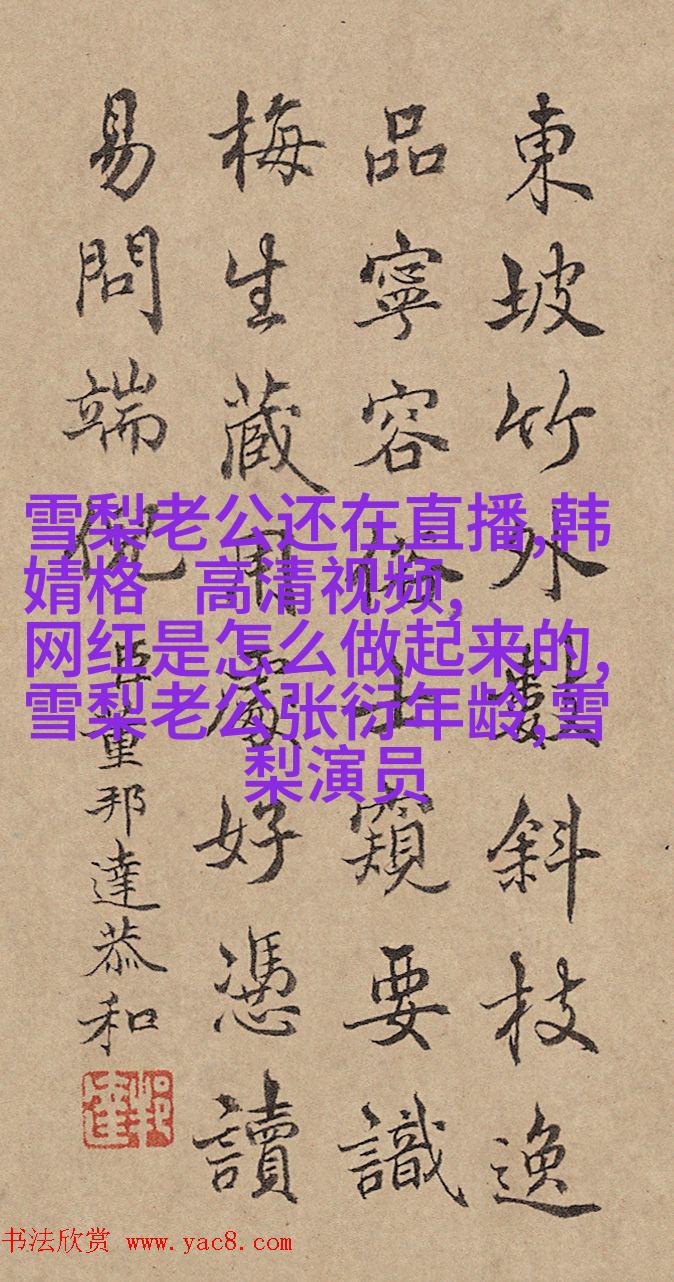 東坡竹外數斜枝逸
品寧容俗士窺要識
梅生藏用處好憑讀
易問端倪
臣董邦達恭和
雪梨老公还在直播,韩
婧格 高清视频,
网红是怎么做起来的,
雪梨老公张衍年龄,雪
梨演员
书法欣赏 www.yac8.com